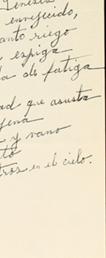 envejecido,
anto riego
espiga
a de fatiga
ad que asusta
gena
y vano
to
tros en el cielo.